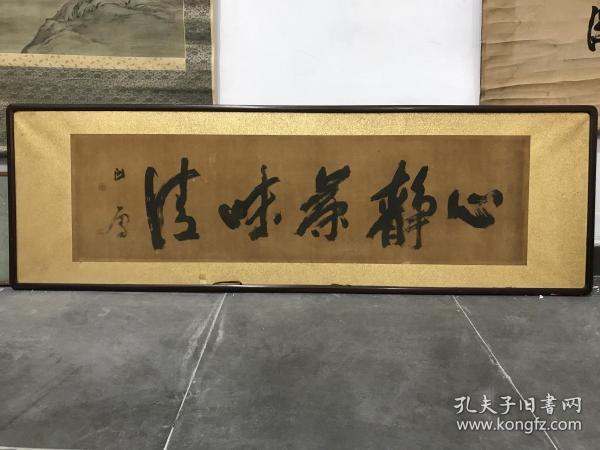 心静茶味清
孔夫子旧书网
www.kongfz.com